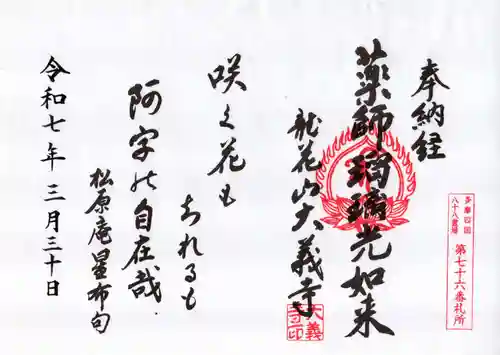 奉納経
多摩四国
八十八霊場
第七十六番札所
薬師瑠璃光如来
龍花山大義寺
大義
寺印
咲く花も
ちれるも
阿字の自在哉
松原庵星布句
令和七年三月三十日